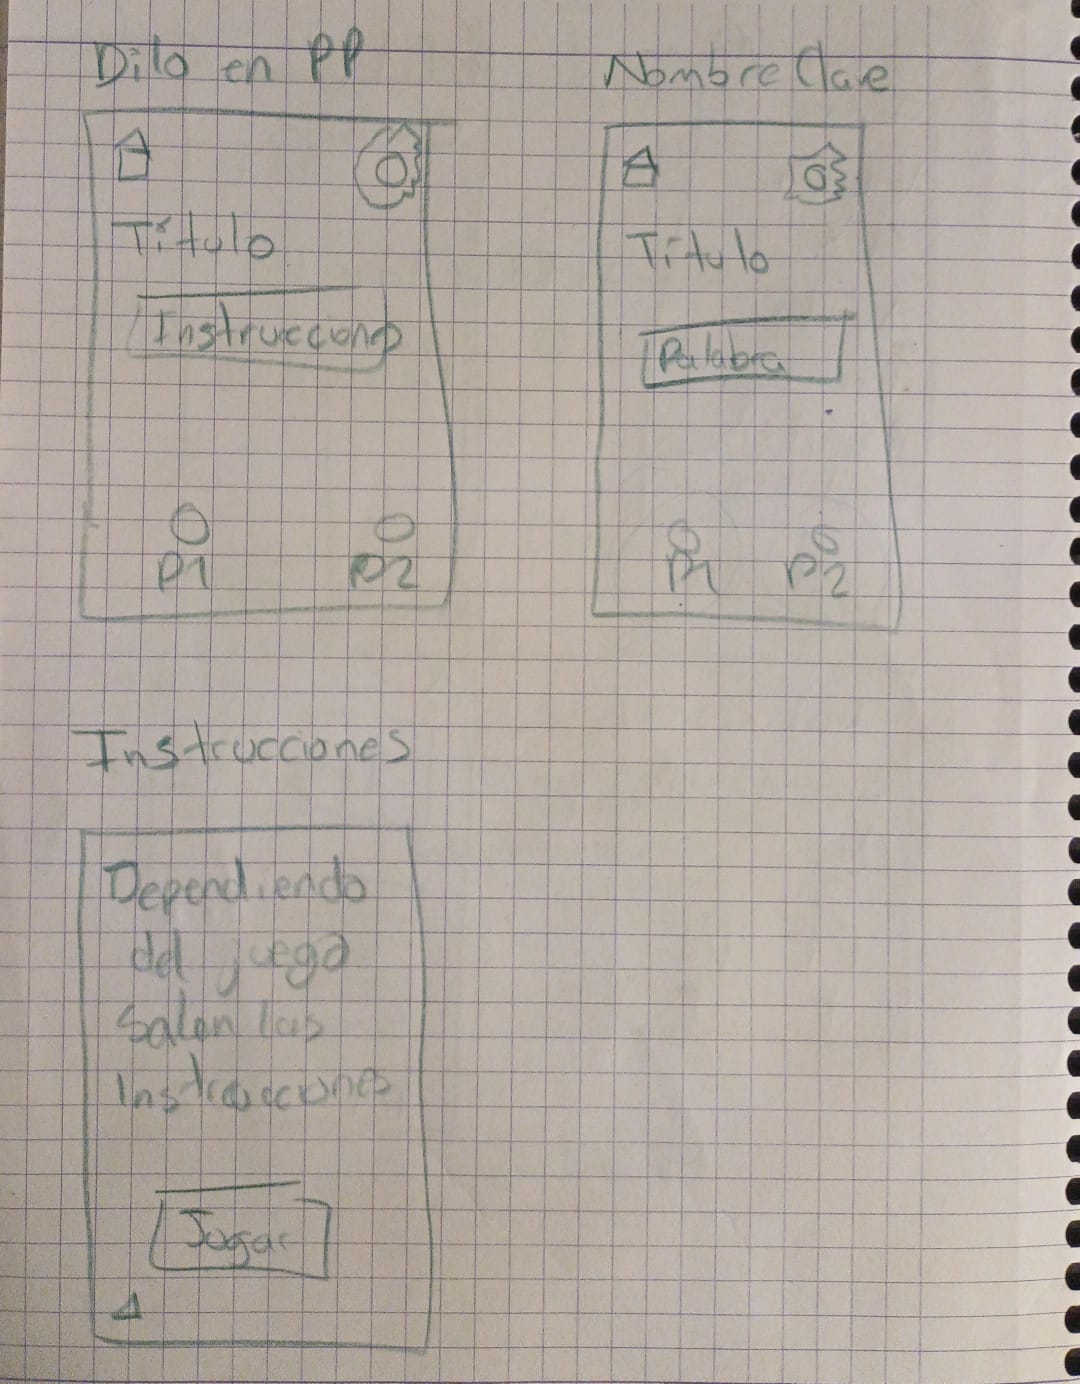 Dilo en PP
Nombre Clave
Título
Instrucciones
P1 P2
Título
Palabra
P1 P2
Instrucciones
Dependiendo
del juego
Salen las
Instrucciones
Jugar